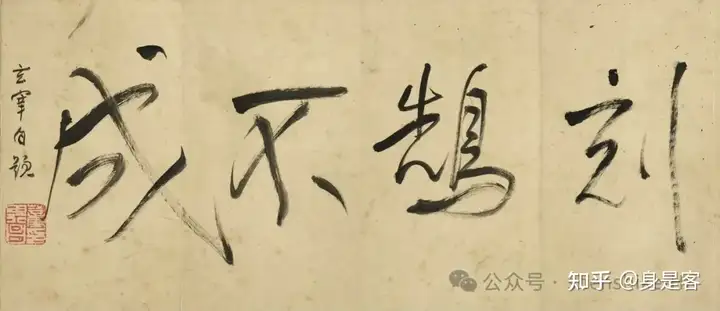 刻鹄不成
玄宰自题
公众号·
知乎 @身是客